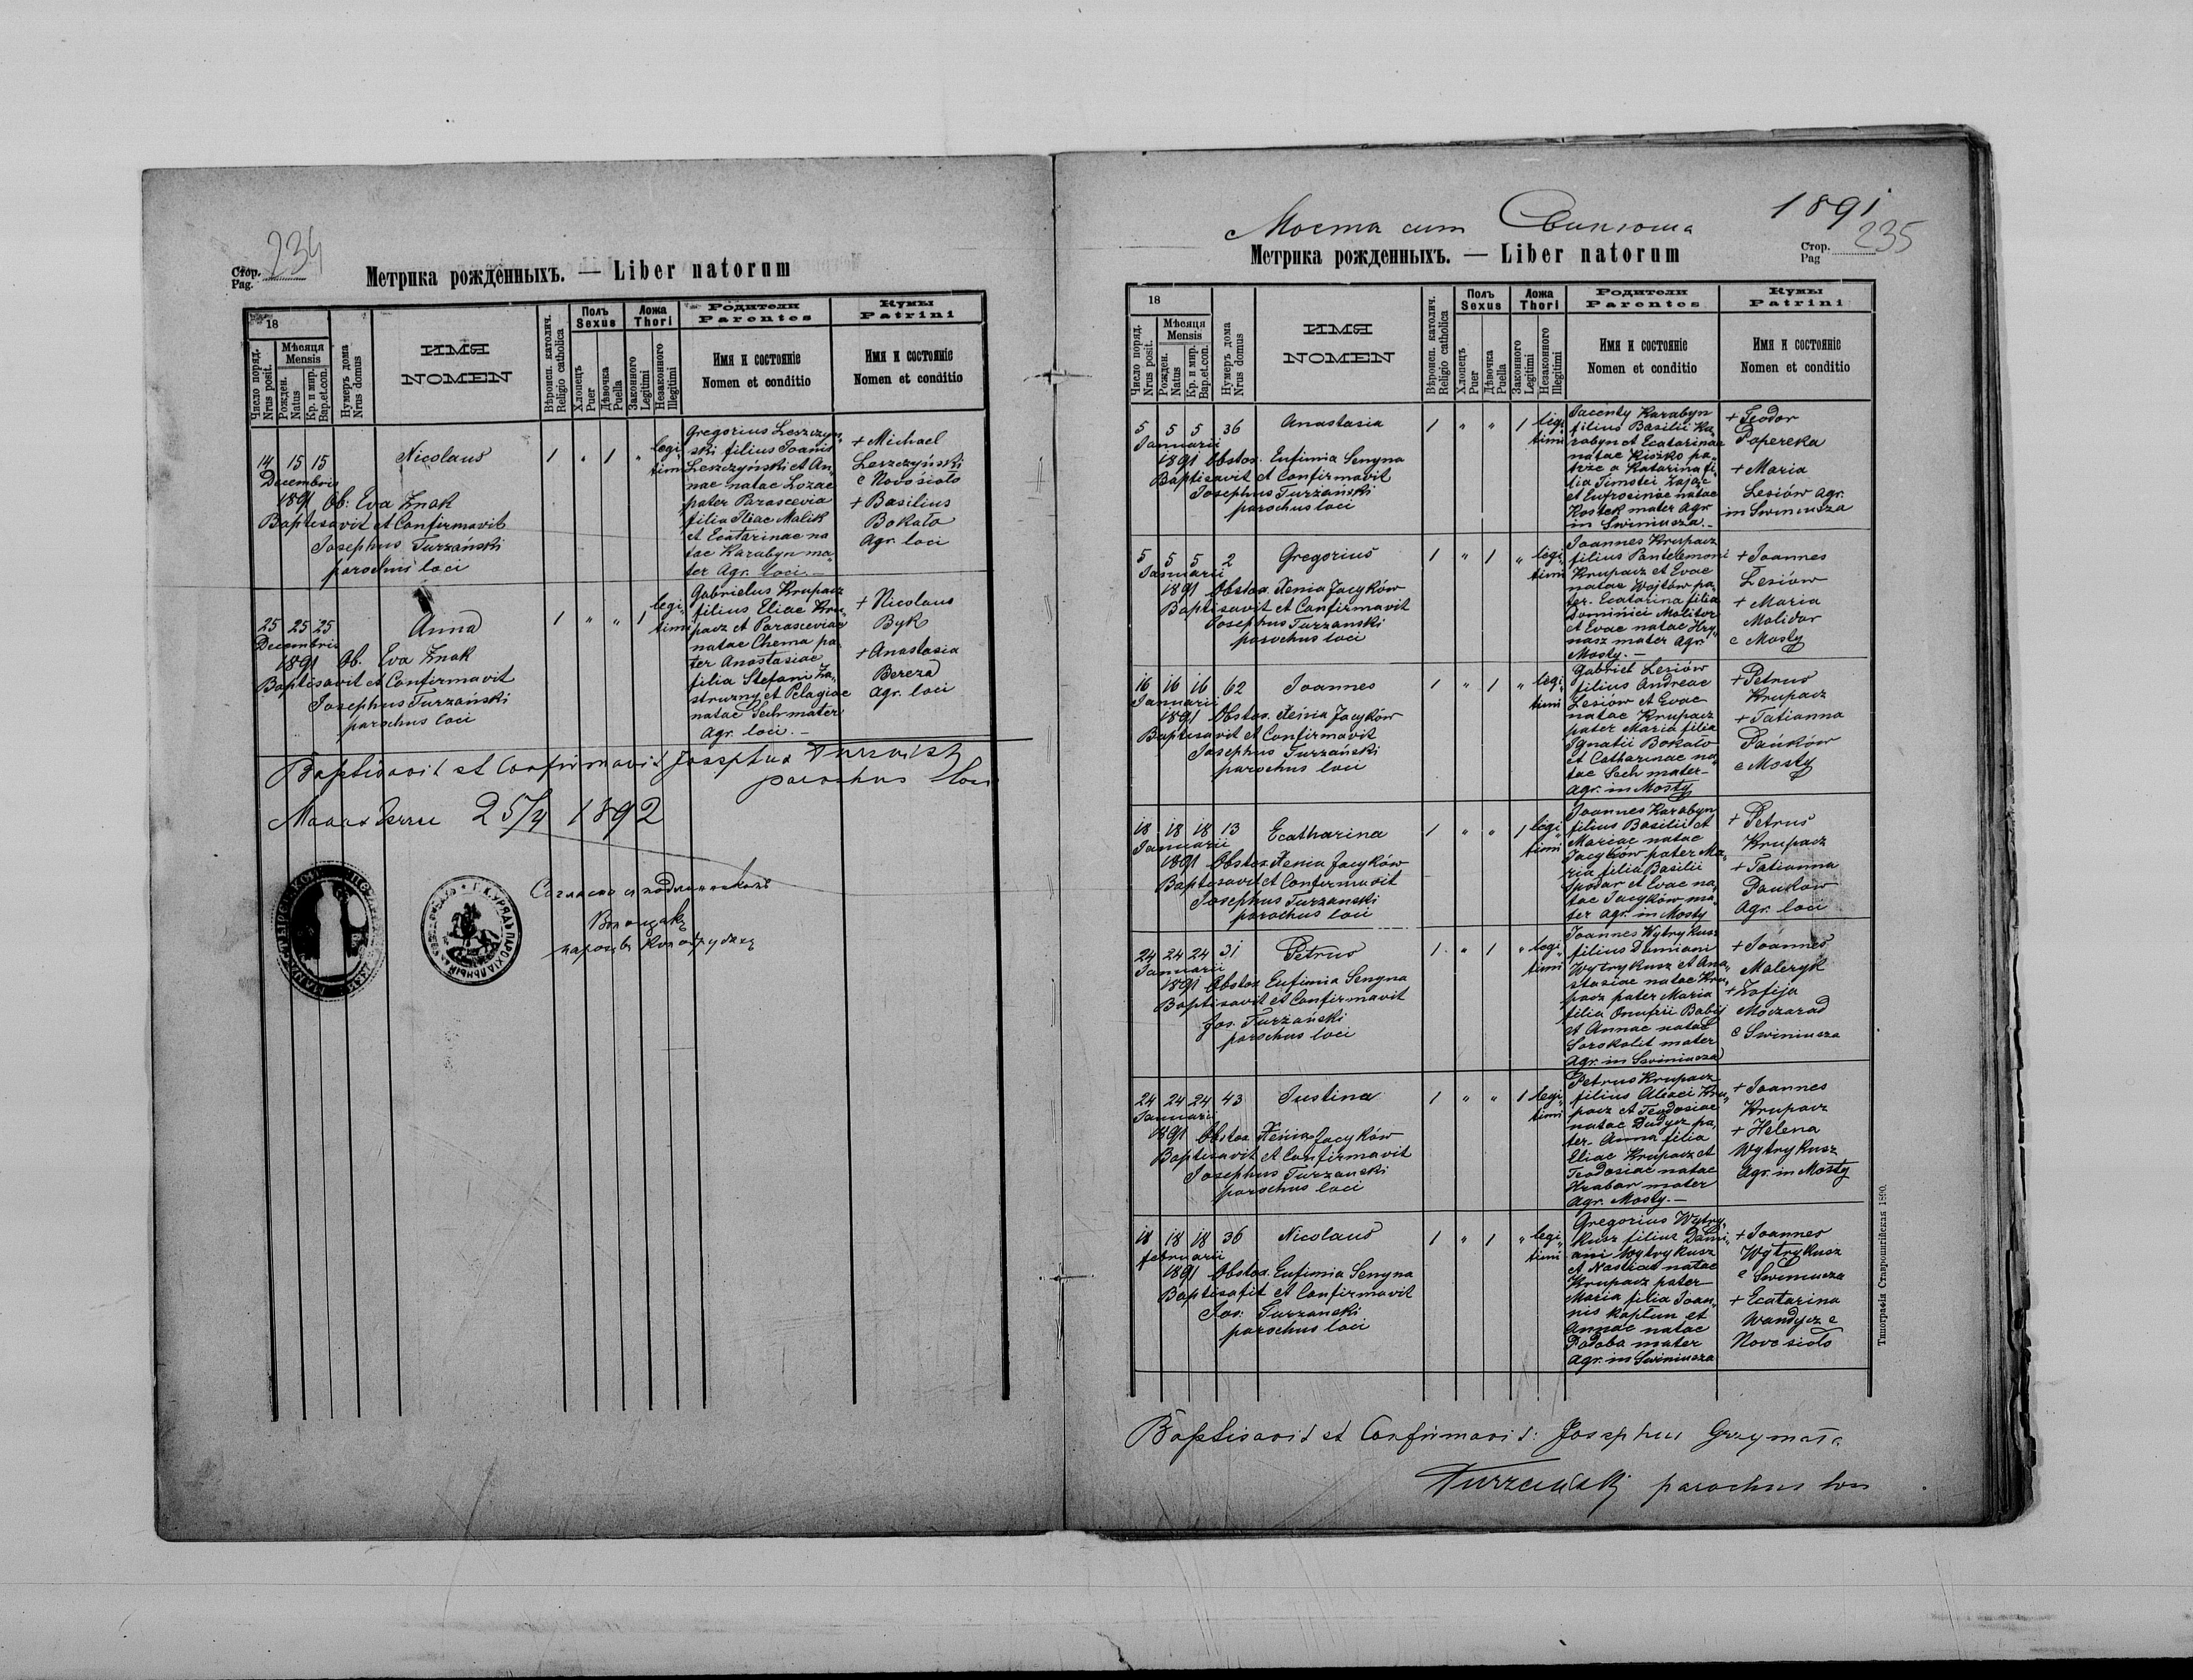 Стор.
Pag. 234
Метрика рожденныхъ. — Liber natorum
18
Число поряд.
Nrus posit.
Мѣсяця
Mensis
Рожден.
Natus
Кр. и мир.
Bap.et.con.
Нумеръ дома
Nrus domus
ИМЯ
NOMEN
Вѣроисп. католич.
Religio catholica
Полъ
Sexus
Хлопець
Puer
Дѣвочка
Puella
Ложа
Thori
Законного
Legitimi
Незаконного
Illegitimi
Родители
Parentes
Имя и состояніе
Nomen et conditio
Кумы
Patrini
Имя и состояніе
Nomen et conditio
14 15 15 Nicolaus 1 " 1 "
Decembris
1891 Ob. Eva Znak
Baptisavit et Confirmavit
Josephus Turzański
parochus loci
legi
timi
Gregorius Leszczyń„
ski filius Joanis
Leszczyński et An„
nae natae Lozae
pater Parascevia
filia Iliae Malik
et Ecatarinae na
tae Karabyn ma„
ter Agr. loci.—
+ Michael
Leszczyński
e Novosioło
+ Basilius
Bokało
Agr. loci
25 25 25 Anna 1 " " 1
Decembris
1891 Ob. Eva Znak
Baptisavit et Confirmavit
Josephus Turzański
parochus loci
legi„
timi
Gabrielus Krupacz
filius Eliae Kru„
pacz et Parasceviae
natae Chema pa„
ter Anastasiae
filia Stefani Za„
struzny et Pelagiae
natae Sech mater
Agr. loci.—
+ Nicolaus
Byk
+ Anastasia
Bereza
Agr. loci
Baptisavit et Confirmavit Josephus Turzański
parochus loci
25/4 1892
Согласно съ
парохъ
1891
Моста cum
Метрика рожденныхъ. — Liber natorum
Стор.
Pag 235
18
Число поряд.
Nrus posit.
Мѣсяця
Mensis
Рожден.
Natus
Кр. и мир.
Bap.et.con.
Нумеръ дома
Nrus domus
ИМЯ
NOMEN
Вѣроисп. католич.
Religio catholica
Полъ
Sexus
Хлопець
Puer
Дѣвочка
Puella
Ложа
Thori
Законного
Legitimi
Незаконного
Illegitimi
Родители
Parentes
Имя и состояніе
Nomen et conditio
Кумы
Patrini
Имя и состояніе
Nomen et conditio
5 5 5 36 Anastasia 1 " " 1
Januarii
1891 Obstox. Eufimia Senyna
Baptisavit et Confirmavit
Josephus Turzański
parochus loci
legi
timi
Jacenty Karabyn
filius Basilii Ka„
rabyn et Ecatarinae
natae Kiszko pa„
Katarina fi„
lia Timotei Zając
et Eufrosinae natae
Kostek mater Agr
in Swiniusza.—
+ Teodor
Popereka
+ Maria
Lesiów Agr.
in Swiniusza
5 5 5 2 Gregorius 1 " 1 "
Januarii
1891 Obstox. Xenia Jacyków
Baptisavit et Confirmavit
Josephus Turzanski
parochus loci
legi
timi
Joannes Krupacz
filius Pantelemoni
Krupacz et Evae
natae Wojtów pa„
ter. Ecatarina filia
Dominici Molitor
et Evae natae Hry„
nasz mater Agr
Mosty.—
+ Joannes
Lesiów
+ Maria
Molidor
e Mosty
16 16 16 62 Joannes 1 " 1 "
Januarii
1891 Obstox. Xenia Jacyków
Baptisavit et Confirmavit
Josephus Turzański
parochus loci
legi„
timi
Gabriel Lesiów
filius Andreae
Lesiów et Evae
natae Krupacz
pater Maria filia
Ignatii Bokało
et Catharinae na„
tae Sech mater—
Agr. in Mosty
+ Petrus
Krupacz
+ Tatianna
Pańków
e Mosty
18 18 18 13 Ecatharina 1 " " 1
Januarii
1891 Obstox Xenia Jacyków
Baptisavit et Confirmavit
Josephus Turzanski
parochus loci
legi„
timi
Joannes Karabyn
filius Basilii et
Mariae natae
Jacyków pater Ma„
ria filia Basilii
Spodar et Evae na„
tae Jacyków ma„
ter Agr. in Mosty
+ Petrus
Krupacz
+ Tatianna
Pańków
Agr. loci
24 24 24 31 Petrus 1 " 1 "
Januarii
1891 Obstox Eufimia Senyna
Baptisavit et Confirmavit
Jos. Turzański
parochus loci
legi„
timi
Joannes Wytrykusz
filius Damiani
Wytrykusz et Ana„
stasiae natae Kru„
pacz pater Maria
filia Onufrii Babij
et Annae natae
Sorokolit mater
Agr. in Swiniusza
+ Joannes
Maleryk
+ Zofija
Moczarad
e Swiniusza
24 24 24 43 Justina 1 " " 1
Januarii
1891 Obstox Xenia Jacyków
Baptisavit et Confirmavit
Josephus Turzanski
parochus loci
legi„
timi
Petrus Krupacz
filius Alexei Kru„
pacz et Teodosiae
natae Dudycz pa„
ter— Anna filia
Eliae Krupacz et
Teodosiae natae
Hrabar mater
Agr. Mosty.—
+ Joannes
Krupacz
+ Helena
Wytrykusz
Agr. in Mosty
18 18 18 36 Nicolaus 1 " 1 "
februarii
1891 Obstox. Eufimia Senyna
Baptisafit et Confirmavit
Jos. Turzanski
parochus loci
legi„
timi
Gregorius Wytry„
kusz filius Dami„
ani Wytrykusz
et Nastiae natae
Krupacz pater—
Maria filia Joan„
nis Kaptun et
Annae natae
Podoba mater
Agr. in Swiniusza
+ Joannes
Wytrykusz
e Swiniusza
+ Ecatarina
Wandycz e
Novosioło
Baptisavit et Confirmavit: Josephus Grzymała
Turzański parochus loci
Типографія Ставропигійская 1890.